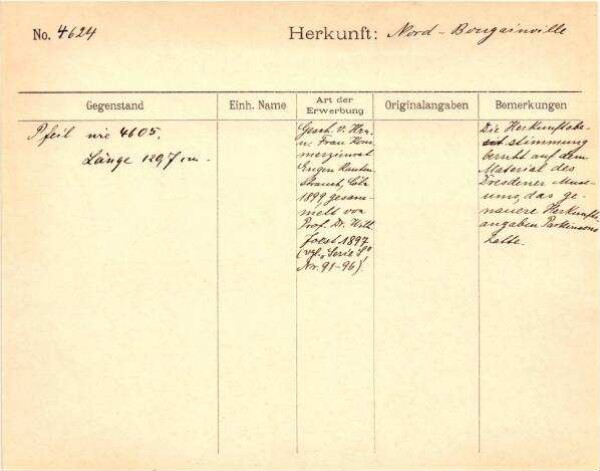 No. 4624
Herkunft: Nord-Bougainville
Gegenstand
Einh. Name
Art der Erwerbung
Originalangaben
Bemerkungen
Pfeil wie 4605.
Länge 129,7 cm.
Gesch. v. Hrn.
u. Frau Kom-
merzienrat
Eugen Rauten-
strauch, Cöln
1899, gesam-
melt von
Prof. Dr. Wilh.
Joest 1897
(vgl. Serie
Nr. 91-96).
Die Herkunftsbe-
stimmung
beruht auf dem
Material des
Dresdener Mus-
ums, das ge-
nauere Herkunfts-
angaben Parkinsons
hatte.